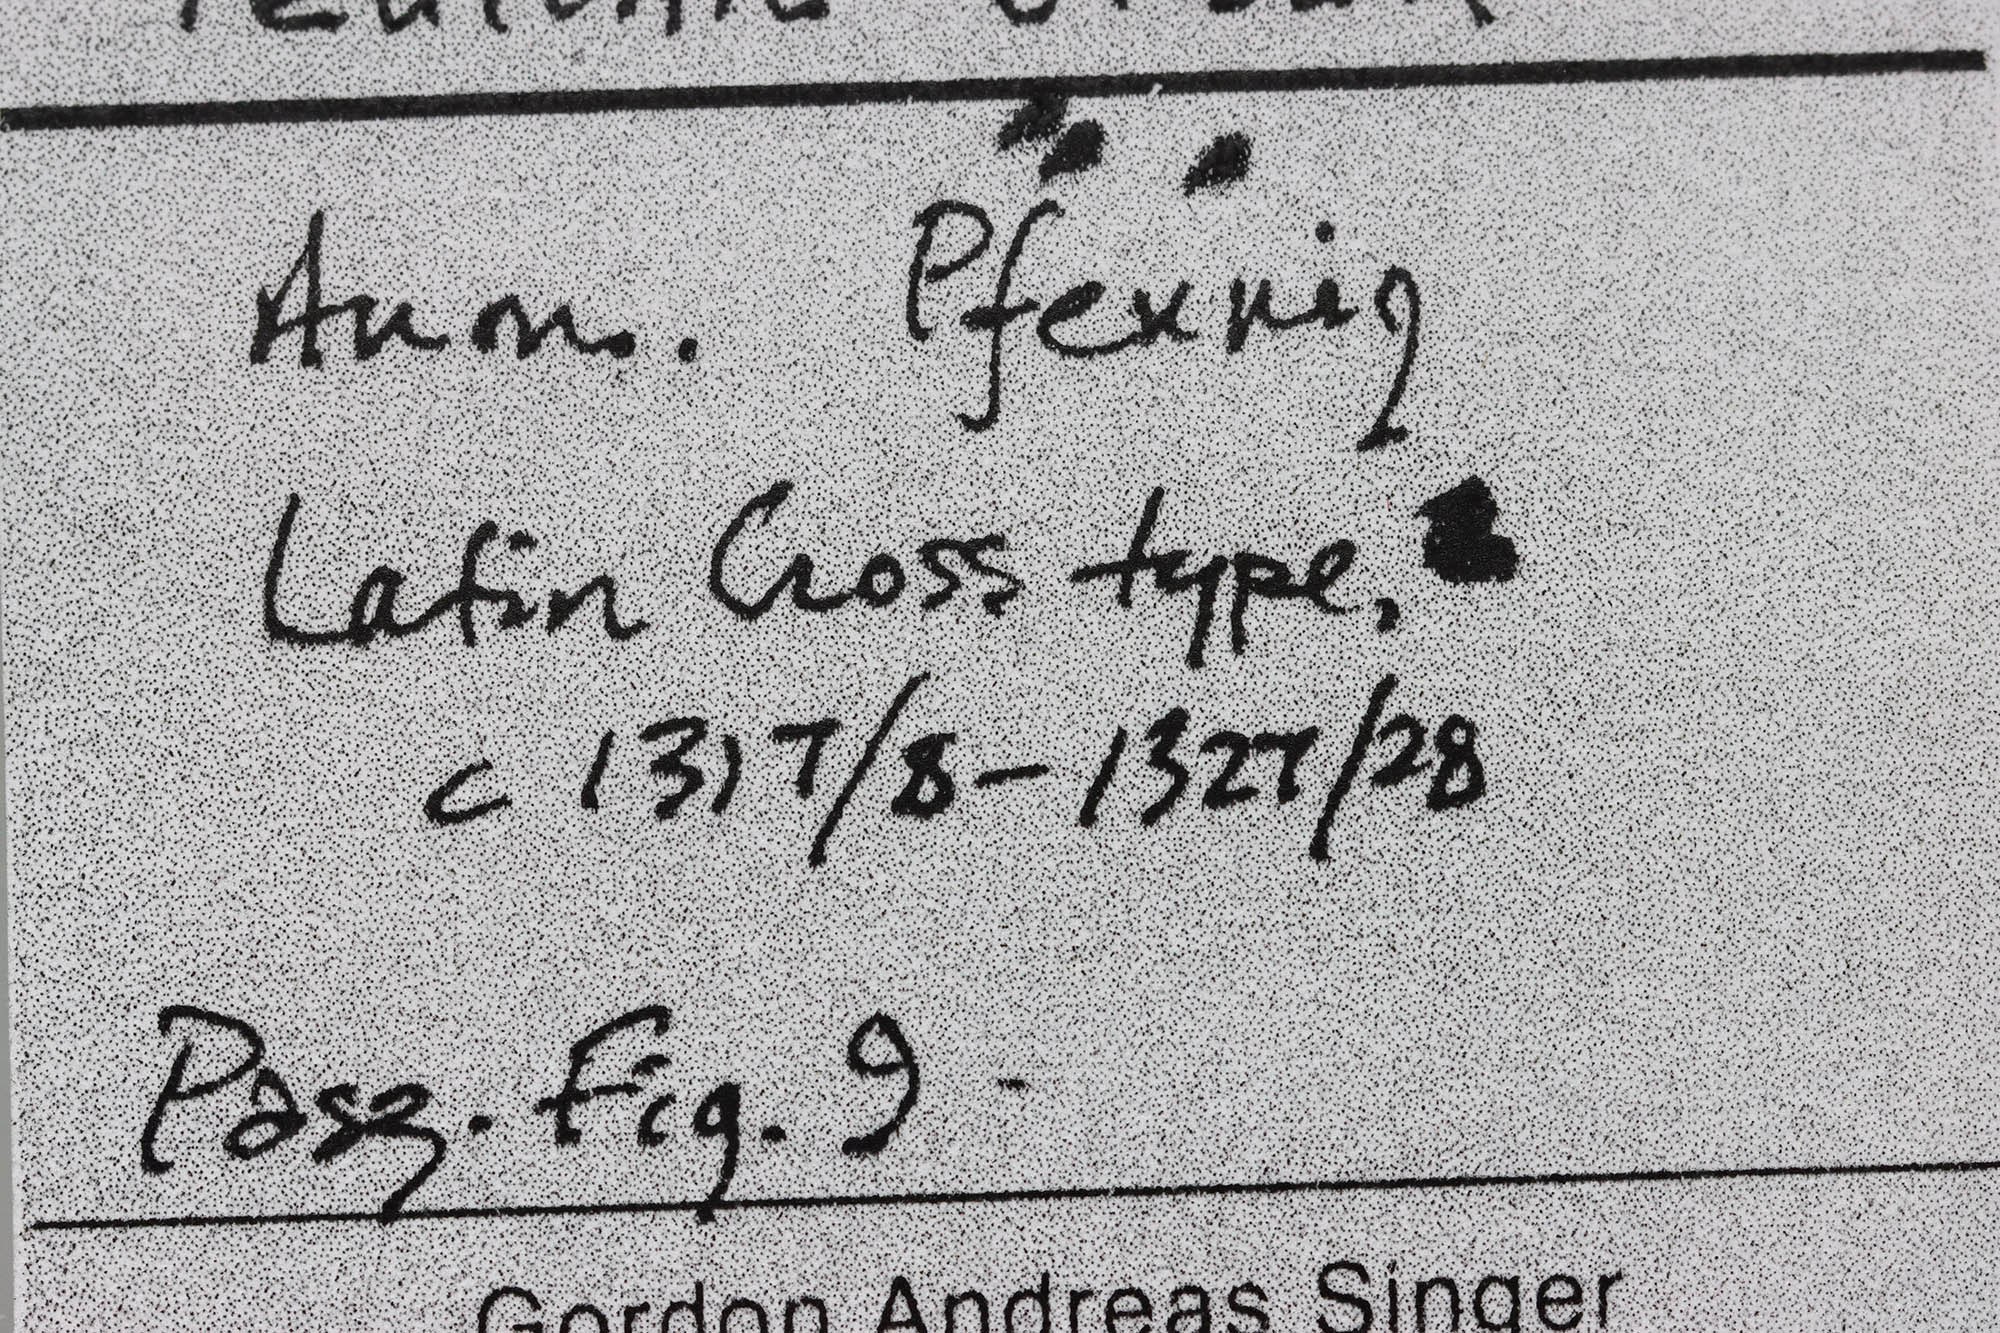 TEUTONIC ORDER
Anon. Pfennig
Latin Cross type,
c 1317/8 - 1327/28
Pasz. Fig. 9
Gordon Andreas Singer